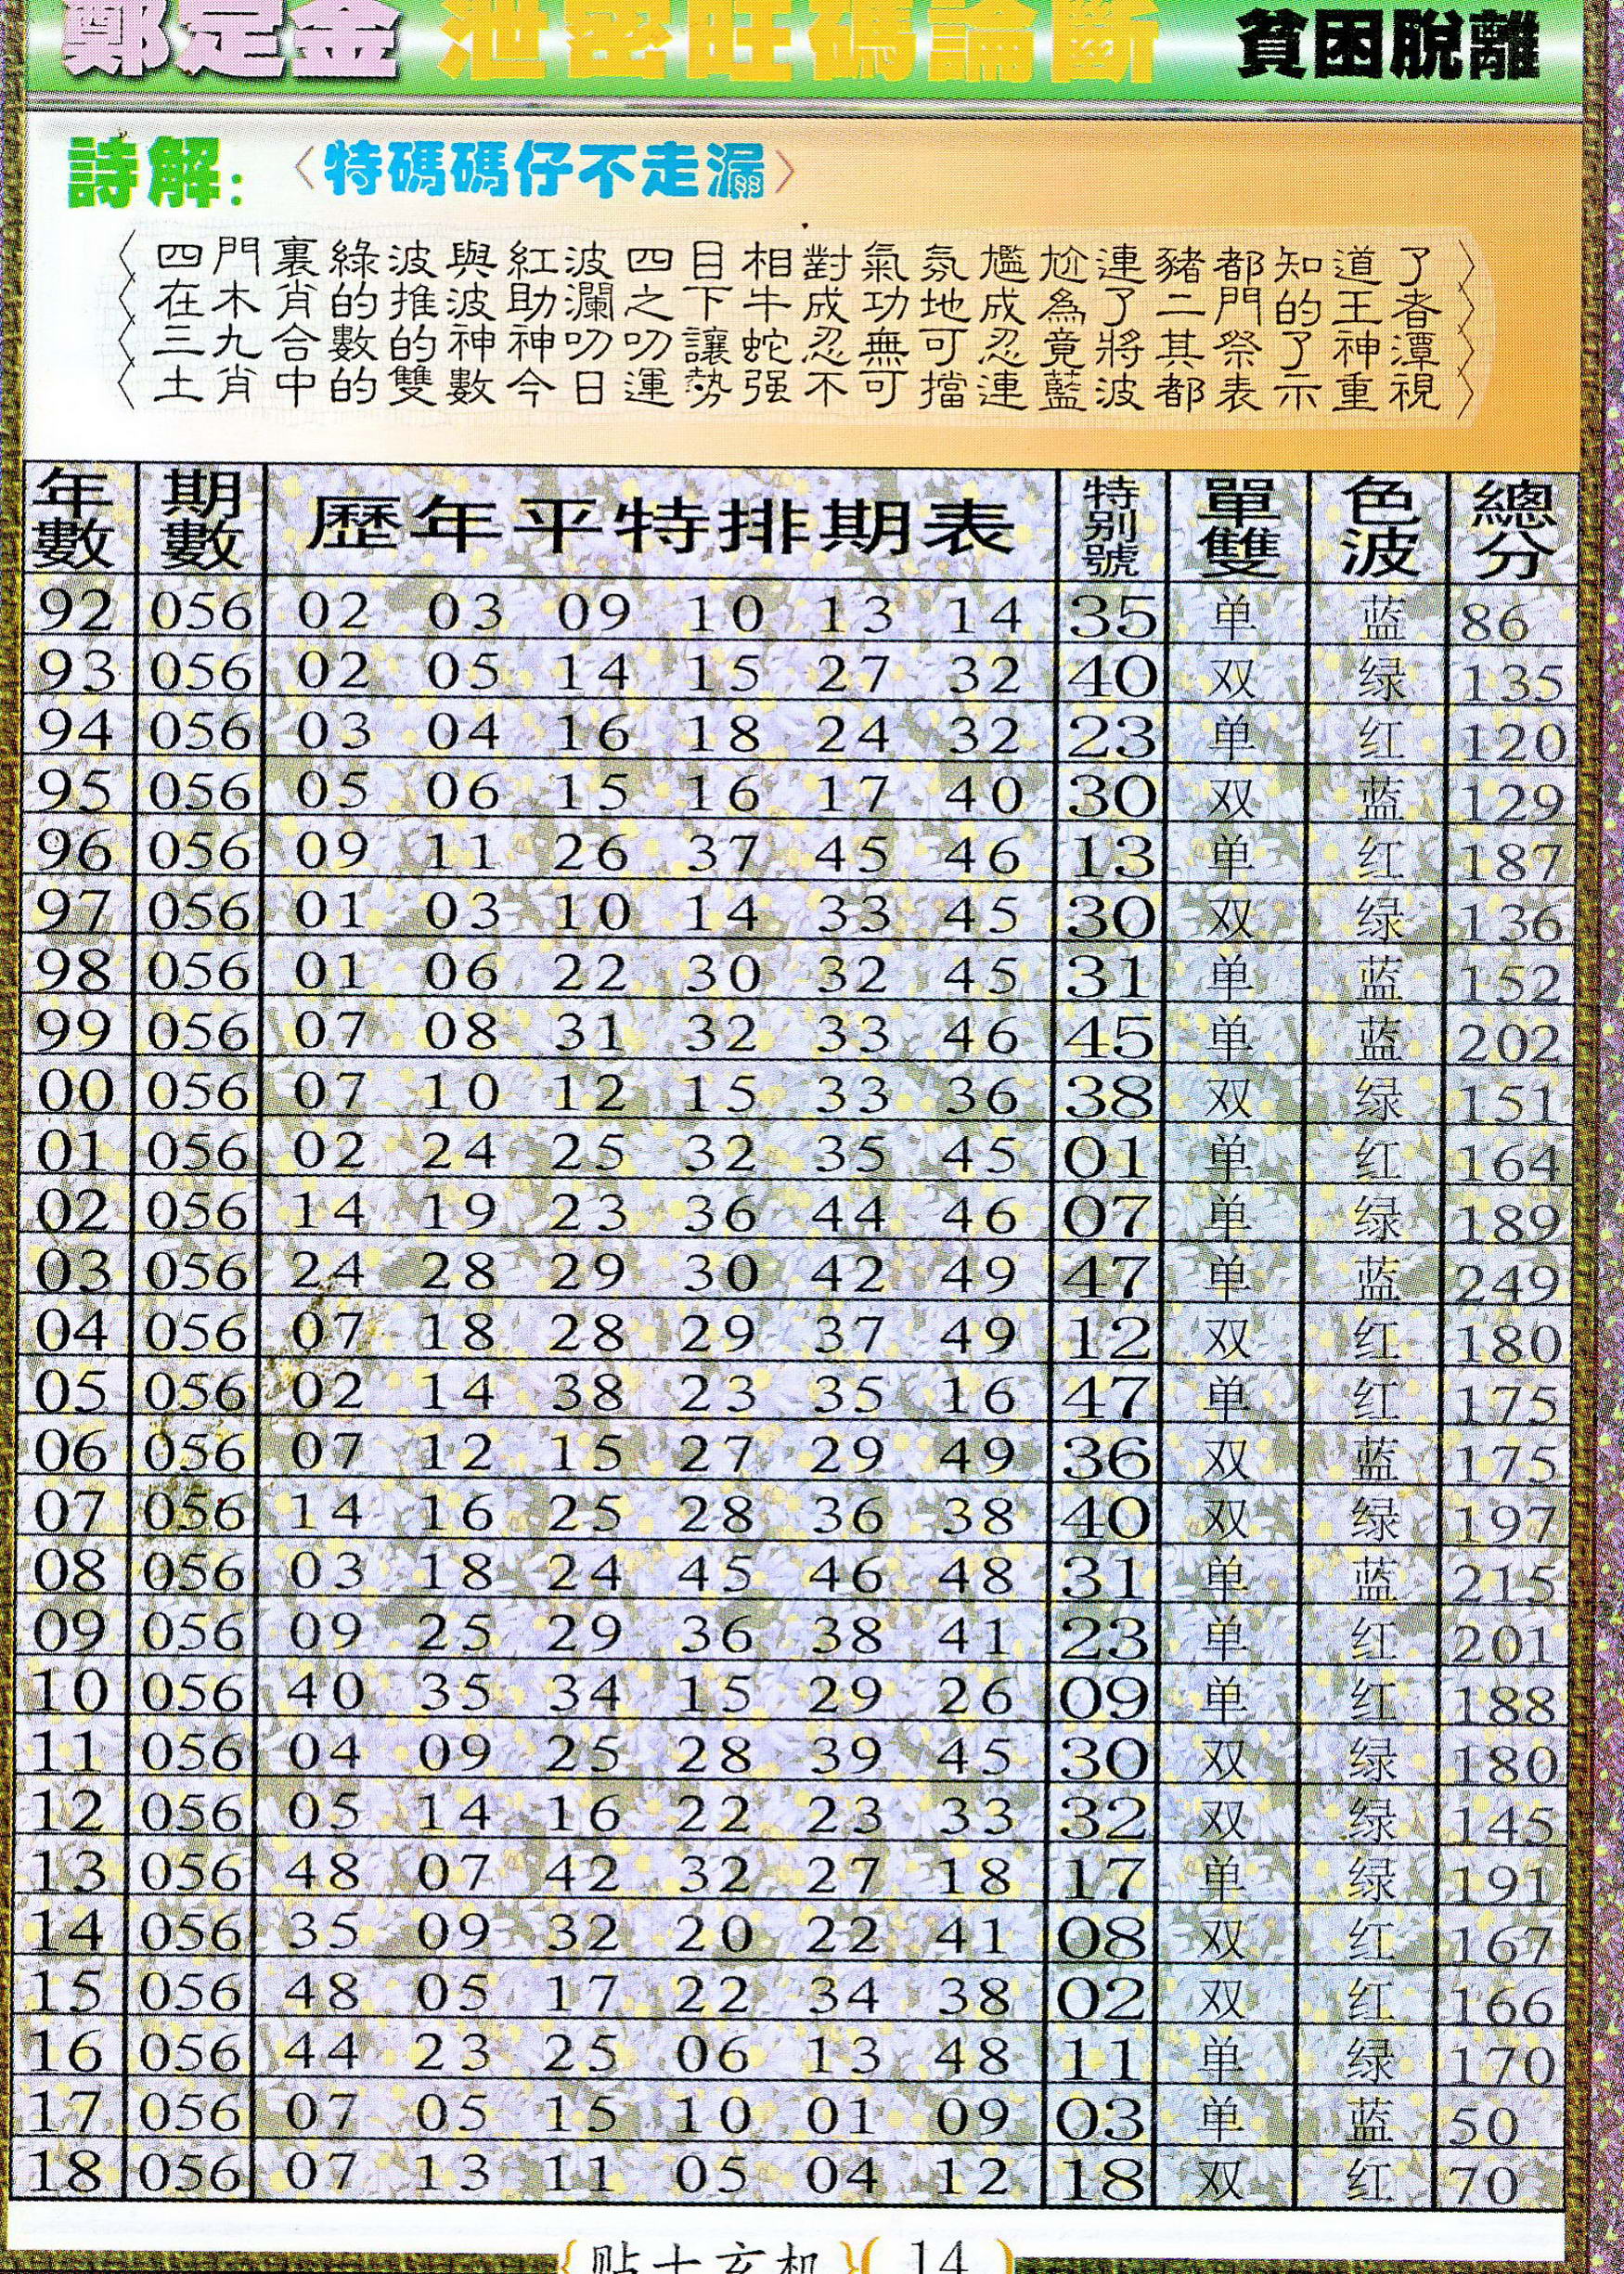 鄭定金 泄密旺碼論斷 貧困脫離
詩解:〈特碼碼仔不走漏〉
四門裏綠波與紅波四目相對氣氛尷尬連豬都知道了
在木肖的推波助瀾之下牛成功地成為了二門的王者
三九合數的神神叨叨讓蛇忍無可忍竟將其祭了神潭
土肖中的雙數今日運勢强不可擋連藍波都表示重視
年數 期數 歷年平特排期表 特别號 單雙 色波 總分
92 056 02 03 09 10 13 14 35 单 蓝 86
93 056 02 05 14 15 27 32 40 双 绿 135
94 056 03 04 16 18 24 32 23 单 红 120
95 056 05 06 15 16 17 40 30 双 蓝 129
96 056 09 11 26 37 45 46 13 单 红 187
97 056 01 03 10 14 33 45 30 双 绿 136
98 056 01 06 22 30 32 45 31 单 蓝 152
99 056 07 08 31 32 33 46 45 单 蓝 202
00 056 07 10 12 15 33 36 38 双 绿 151
01 056 02 24 25 32 35 45 01 单 红 164
02 056 14 19 23 36 44 46 07 单 绿 189
03 056 24 28 29 30 42 49 47 单 蓝 249
04 056 07 18 28 29 37 49 12 双 红 180
05 056 02 14 38 23 35 16 47 单 红 175
06 056 07 12 15 27 29 49 36 双 蓝 175
07 056 14 16 25 28 36 38 40 双 绿 197
08 056 03 18 24 45 46 48 31 单 蓝 215
09 056 09 25 29 36 38 41 23 单 红 201
10 056 40 35 34 15 29 26 09 单 红 188
11 056 04 09 25 28 39 45 30 双 绿 180
12 056 05 14 16 22 23 33 32 双 绿 145
13 056 48 07 42 32 27 18 17 单 绿 191
14 056 35 09 32 20 22 41 08 双 红 167
15 056 48 05 17 22 34 38 02 双 红 166
16 056 44 23 25 06 13 48 11 单 绿 170
17 056 07 05 15 10 01 09 03 单 蓝 50
18 056 07 13 11 05 04 12 18 双 红 70
{贴士玄机}(14)